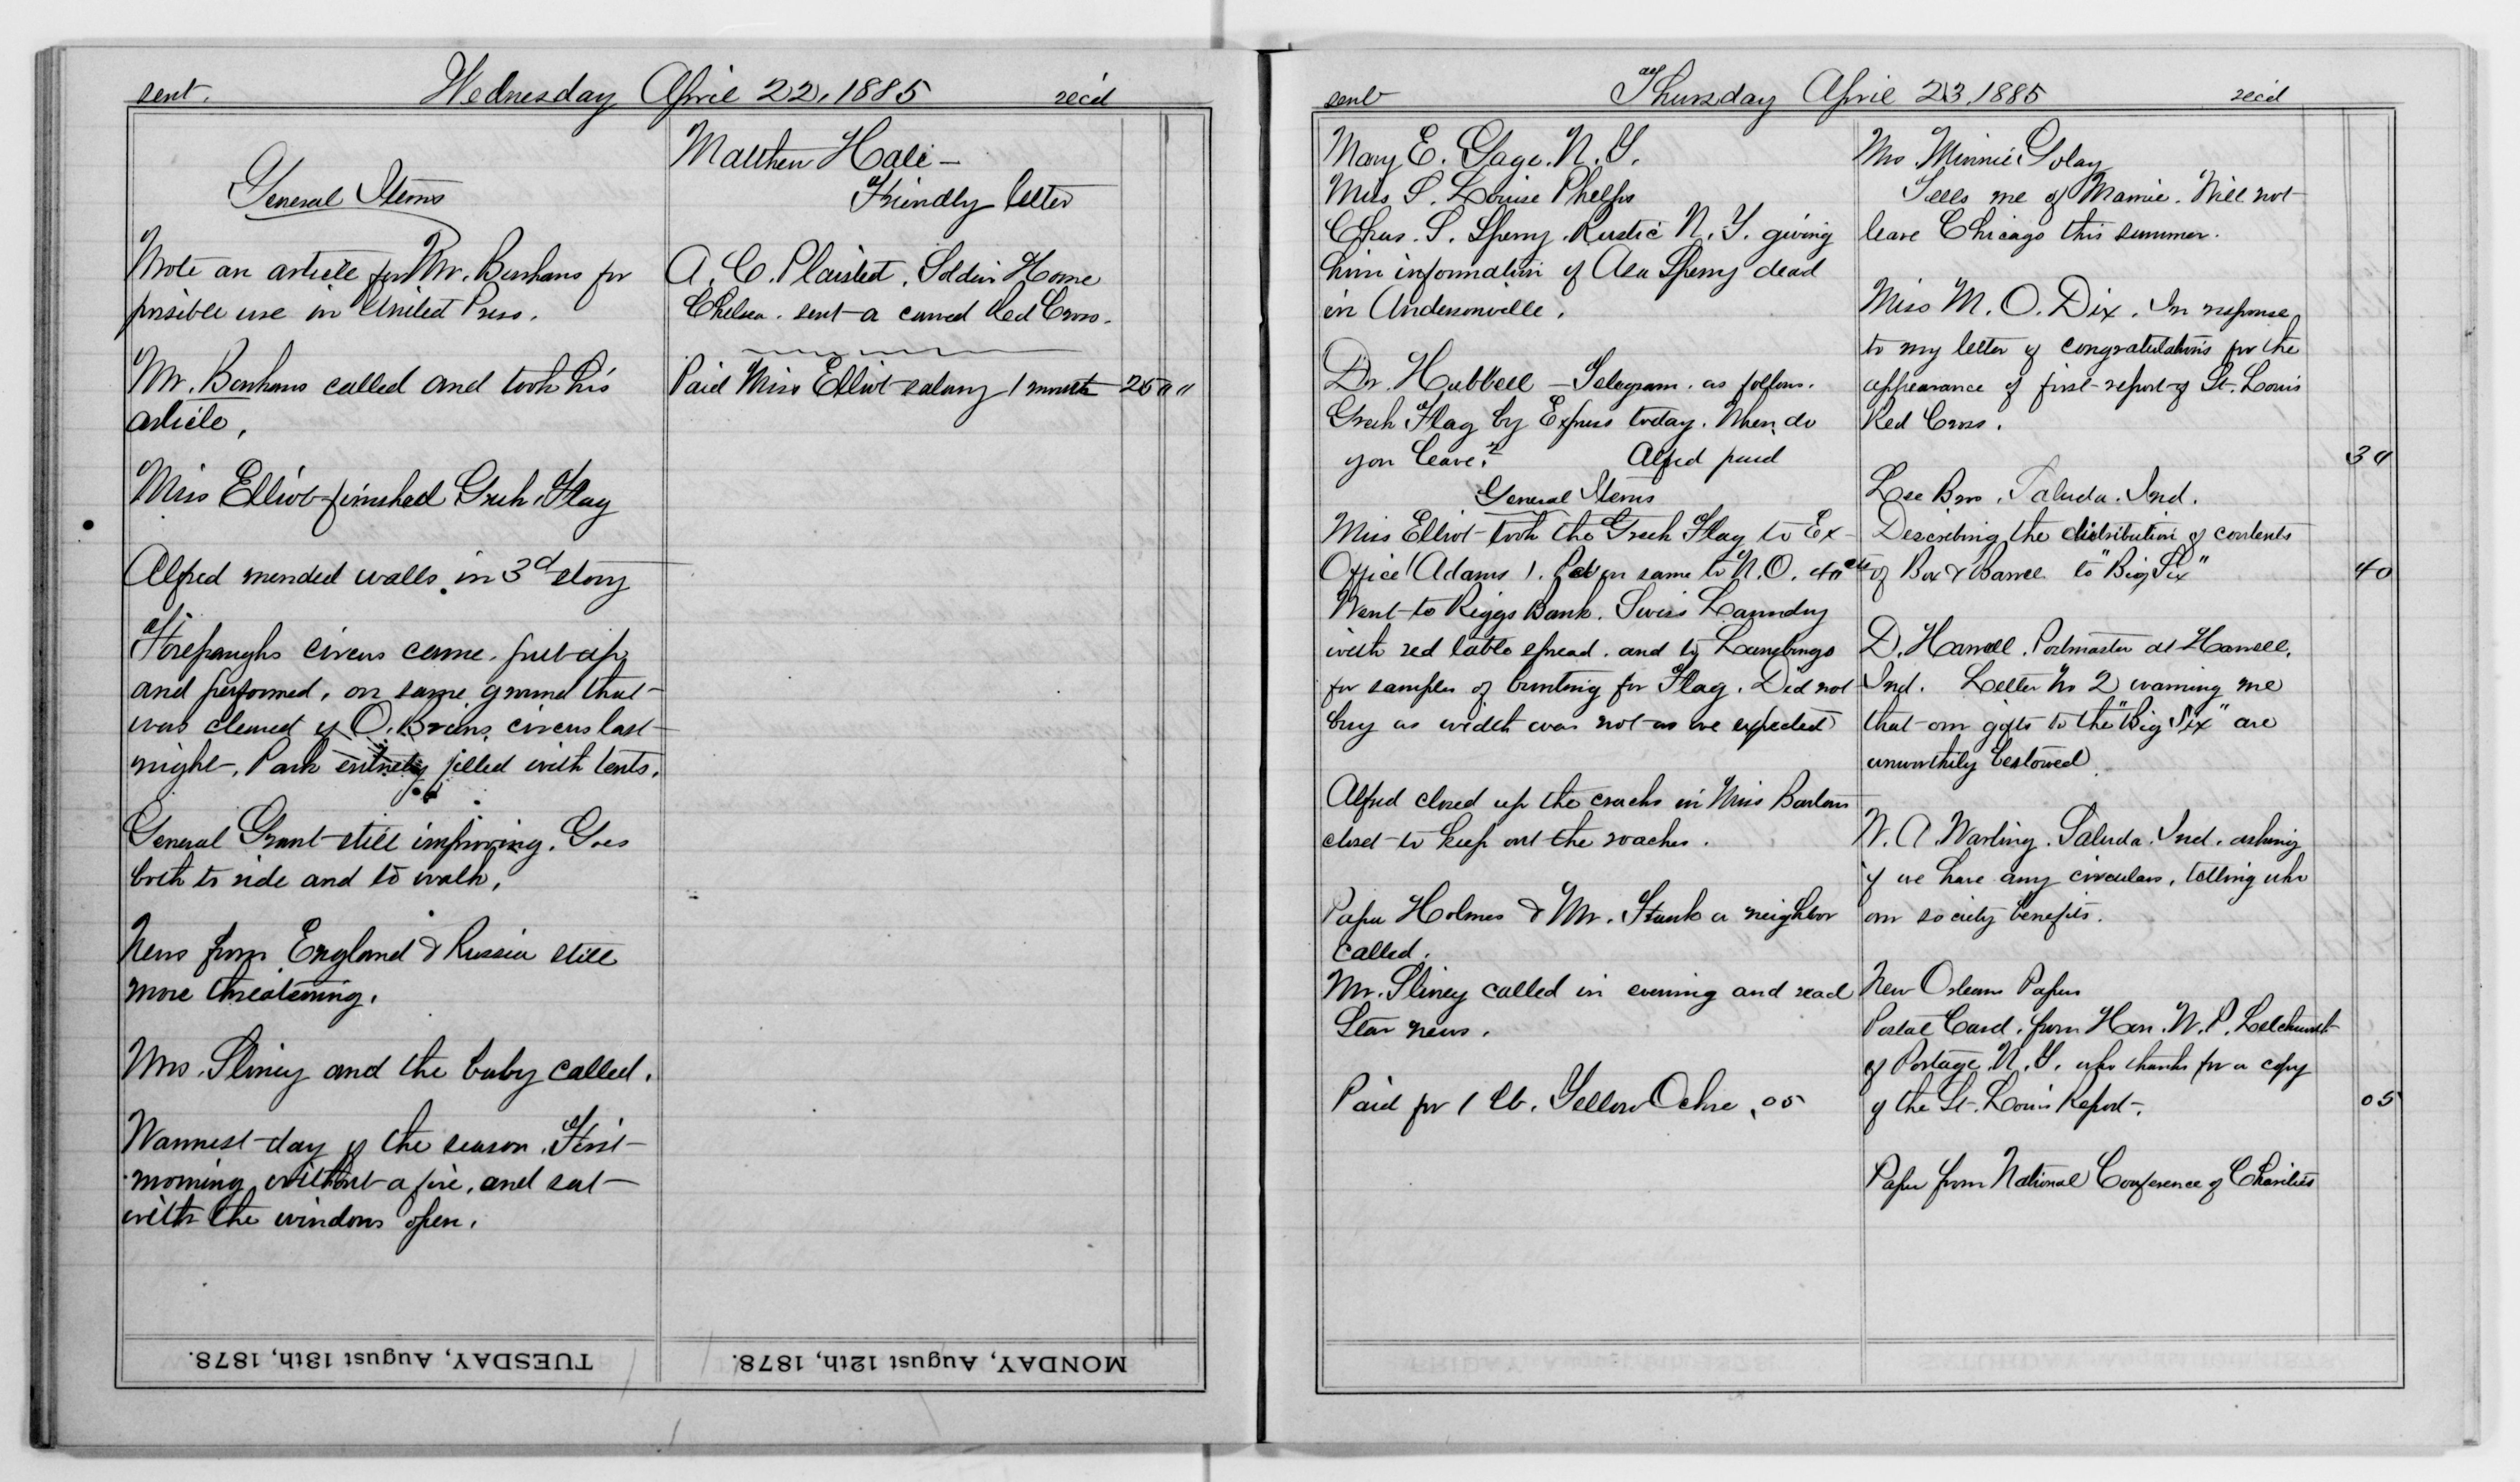 sent. Wednesday April 22, 1885 rec'd
General Items
Wrote an article for Mr. Benhams for
possible use in United Press.
Mr. Benhams called and took his
article,
Miss Elliot finished Greek Flag
Alfred mended walls in 3d story
Forepaughs circus came, put up,
and performed, on same ground that
was cleared of O. Briens circus last
night, Park entirely filled with tents.
General Grant still improving. Goes
both to ride and to walk.
News from England & Russia still
more threatening.
Mrs. Pliney and the baby called.
Warmest day of the season. First
morning without a fire, and sat
with the windows open.
Matthew Hale -
Friendly letter
A. C. Plaisted, Soldier Home
Chelsea. sent a carved Red Cross.
Paid Miss Elliot salary 1 month 25 " "
TUESDAY, August 13th, 1878.
MONDAY, August 12th, 1878.
sent Thursday April 23, 1885 rec'd
Mary E. Gage. N. Y.
Miss S. Louise Phelps
Chas. S. Sperry. Rustic N. Y. giving
him information of Asa Sperry dead
in Andersonville.
Dr. Hubbell - Telegram. as follows.
Greek Flag by Express today. When do
you leave? Alfred paid
General Items
Miss Elliot took the Greek Flag to Ex
Office (Adams). Pd on same to N. O. 40 cts
Went to Riggs Bank. Swiss Laundry
with red table spread. and to Lansbrugs
for samples of bunting for Flag. Did not
buy as width was not as we expected
Alfred closed up the cracks in Miss Bartons
closet to keep out the roaches.
Papa Holmes & Mr. Stank a neighbor
called.
Mr. Pliney called in evening and read
Star news.
Paid for 1 lb. Yellow Ochre .05
Mrs Minnie Golay
Tells me of Mamie. Will not
leave Chicago this summer.
Miss M. O. Dix. In response
to my letter of congratulations for the
appearance of first report of St. Louis
Red Cross.
34
Lee Bros. Saluda. Ind.
Describing the distribution of contents
of Box & Barrel to "Big Six" 40
D. Harrell. Postmaster at Harrell,
Ind. Letter No 2 warning me
that our gifts to the "Big Six" are
unworthily bestowed
W. A. Warling. Saluda. Ind. asking
if we have any circulars, telling who
our society benefits.
New Orleans Papers
Postal Card. from Hon. W. P. Letchworth
of Portage. N. Y. who thanks for a copy
of the St. Louis Report. 05
Paper from National Conference of Charities